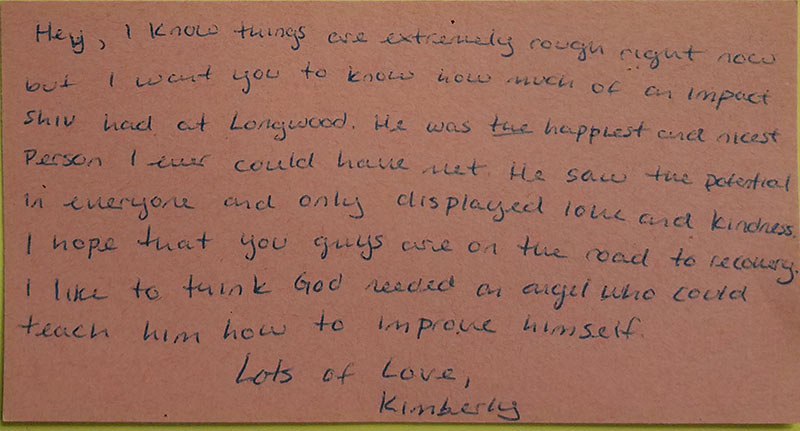 Hey, I know things are extremely rough right now
but I want you to know how much of an impact
Shiv had at Longwood. He was the happiest and nicest
Person I ever could have met. He saw the potential
in everyone and only displayed love and kindness.
I hope that you guys are on the road to recovery.
I like to think God needed an angel who could
teach him how to improve himself.
Lots of Love,
Kimberly